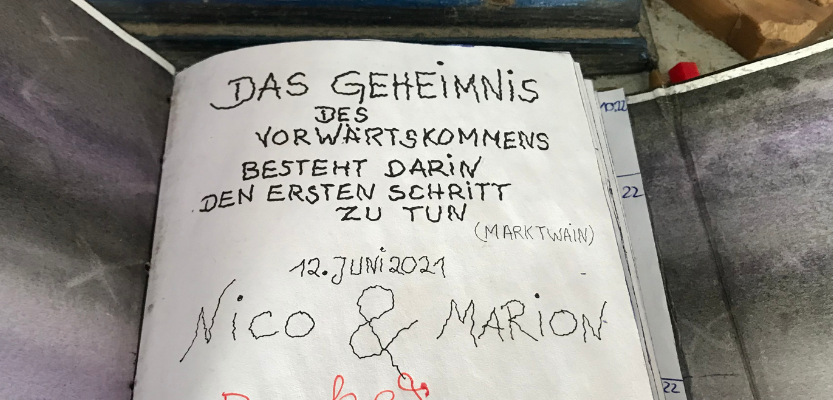 DAS GEHEIMNIS
DES
VORWÄRTSKOMMENS
BESTEHT DARIN
DEN ERSTEN SCHRITT
ZU TUN
(MARKTWAIN)
12. JUNI 2021
NICO & MARION
22
22